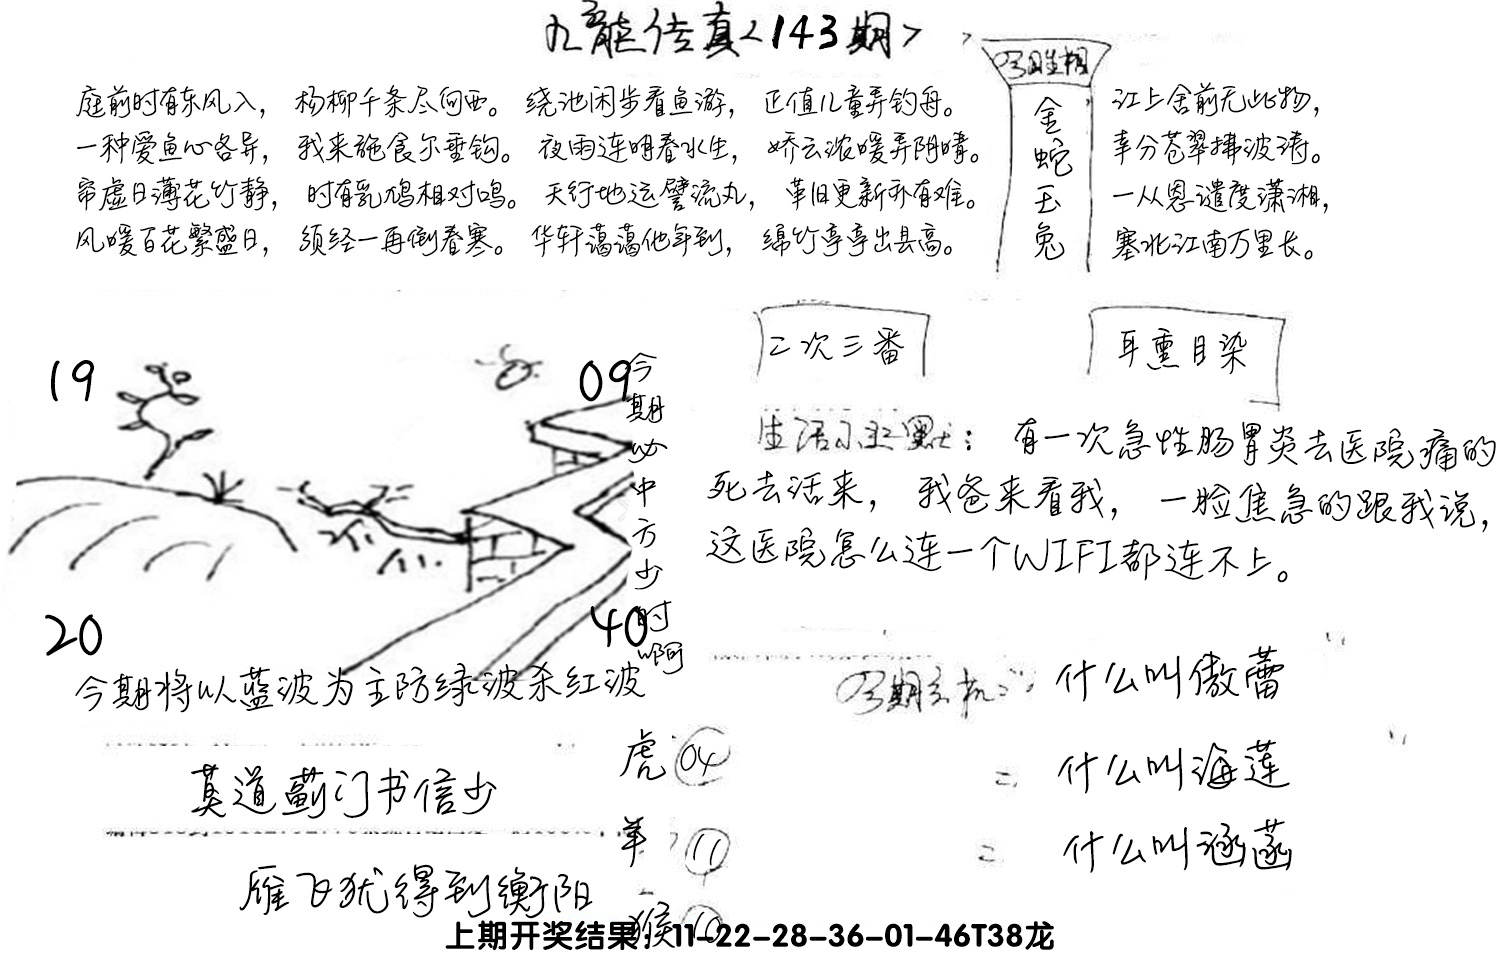 九龍传真<143期>
庭前时有东风入， 杨柳千条尽向西。 绕池闲步看鱼游， 正值儿童弄钓舟。
一种爱鱼心各异， 我来施食尔垂钩。 夜雨连明春水生， 娇云浓暖弄阴晴。
帘虚日薄花竹静， 时有乳鸠相对鸣。 天行地运譬流丸， 革旧更新亦有难。
风暖百花繁盛日， 须经一再倒春寒。 华轩蔼蔼他年到， 绵竹亭亭出县高。
今期生相
金蛇玉兔
江上舍前无此物，
幸分苍翠拂波涛。
一从恩谴度潇湘，
塞北江南万里长。
19
09
20
40
今期必中方少时啊
今期将以蓝波为主防绿波杀红波
二次三番
耳熏目染
生活小幽默： 有一次急性肠胃炎去医院痛的
死去活来， 我爸来看我， 一脸焦急的跟我说，
这医院怎么连一个WIFI都连不上。
莫道蓟门书信少
雁飞犹得到衡阳
虎 04
羊 11
猴 10
今期玄机：
什么叫傲蕾
= 什么叫海莲
= 什么叫涵菡
上期开奖结果：11-22-28-36-01-46T38龙